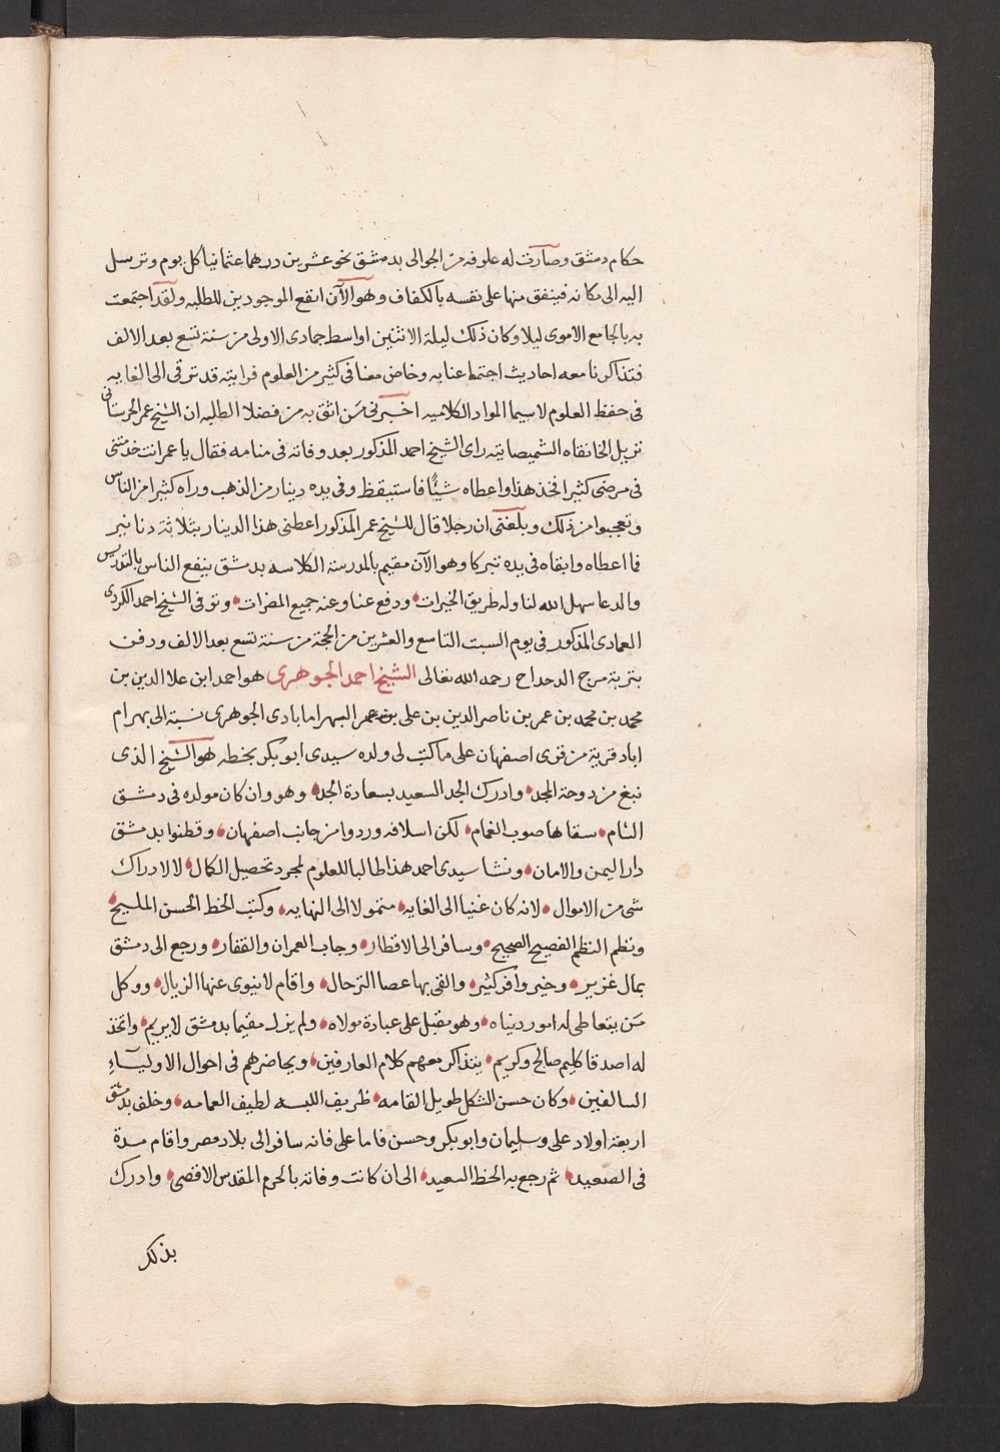 حكام دمشق وصارت له علوفه من الجوالى بدمشق نحو عشرين درهما عثمانيا كل يوم وترسل
اليه الى مكانه فينفق منها على نفسه بالكفاف وهو الآن انفع الموجودين للطلبه ولقد اجتمعت
به بالجامع الاموى ليلا وكان ذلك ليلة الاثنين اواسط جمادى الاولى من سنة تسع بعد الالف
فتذاكرنا معه احاديث اجتماعنا به وخاض معنا فى كثير من العلوم فرايته قد ترقى الى الغايه
فى حفظ العلوم لا سيما المواد الكلاميه اخبرنى من اثق به من فضلا الطلبه ان الشيخ عمر الخرستانى
نزيل الخانقاه الشميصاتيه راى الشيخ احمد المذكور بعد وفاته فى منامه فقال يا عمر انت خدمتنى
فى مرضى كثيرا فخذ هذا واعطاه شيئًا فاستيقظ وفى يده دينار من الذهب وراه كثيرا من الناس
وتعجبوا من ذلك وبلغنى ان رجلا قال للشيخ عمر المذكور اعطنى هذا الدينار بثلاثة دنانير
فما اعطاه وابقاه فى يده تبركا وهو الآن مقيم بالمدرسة الكلاسه بدمشق ينفع الناس بالتدريس
والدعا سهل الله لنا وله طريق الخيرات ودفع عنا وعنه جميع المضرات وتوفى الشيخ احمد الكردى
العمادى المذكور فى يوم السبت التاسع والعشرين من الحجة من سنة تسع بعد الالف ودفن
بتربة مرج الدحداح رحمه الله تعالى الشيخ احمد الجوهرى هو احمد ابن علا الدين بن
محمد بن محمد بن عمر بن ناصر الدين بن على بن عمر البهرامابادى الجوهرى نسبة الى بهرام
اباد قرية من قرى اصفهان على ما كتب لى ولده سيدى ابو بكر بخطه هو الشيخ الذى
نبغ من دوحة المجد وادرك الجد السعيد بسعادة الجد وهو وان كان مولده فى دمشق
الشام سقاها صوب الغمام لكن اسلافه وردوا من جانب اصفهان وقطنوا بدمشق
دار اليمن والامان ونشا سيدى احمد هذا طالبا للعلوم لمجرد تحصيل الكمال لا لادراك
شى من الاموال لانه كان غنيا الى الغايه متمولا الى النهايه وكتب الخط الحسن المليح
ونظم النظم الفصيح الصحيح وسافر الى الاقطار وجاب العمران والقفار ورجع الى دمشق
بمال غزير وخير وافر كثير والقى بها عصا الترحال واقام لا ينوى عنها الزيال ووكل
من يتعاطى له امور دنياه وهو مقبل على عبادة مولاه ولم يزل مقيما بدمشق لا يريم واتخذ
له اصدقا كلهم صالح وكريم يتذاكر معهم كلام العارفين ويحاضرهم فى احوال الاوليآء
السالفين وكان حسن الشكل طويل القامه ظريف اللبسه لطيف العمامه وخلف بدمشق
اربعة اولاد على وسليمان وابو بكر وحسن فاما على فانه سافر الى بلاد مصر واقام مدة
فى الصعيد ثم رجع به الحظ السعيد الى ان كانت وفاته بالحرم المقدس الاقصى وادرك
بذلك